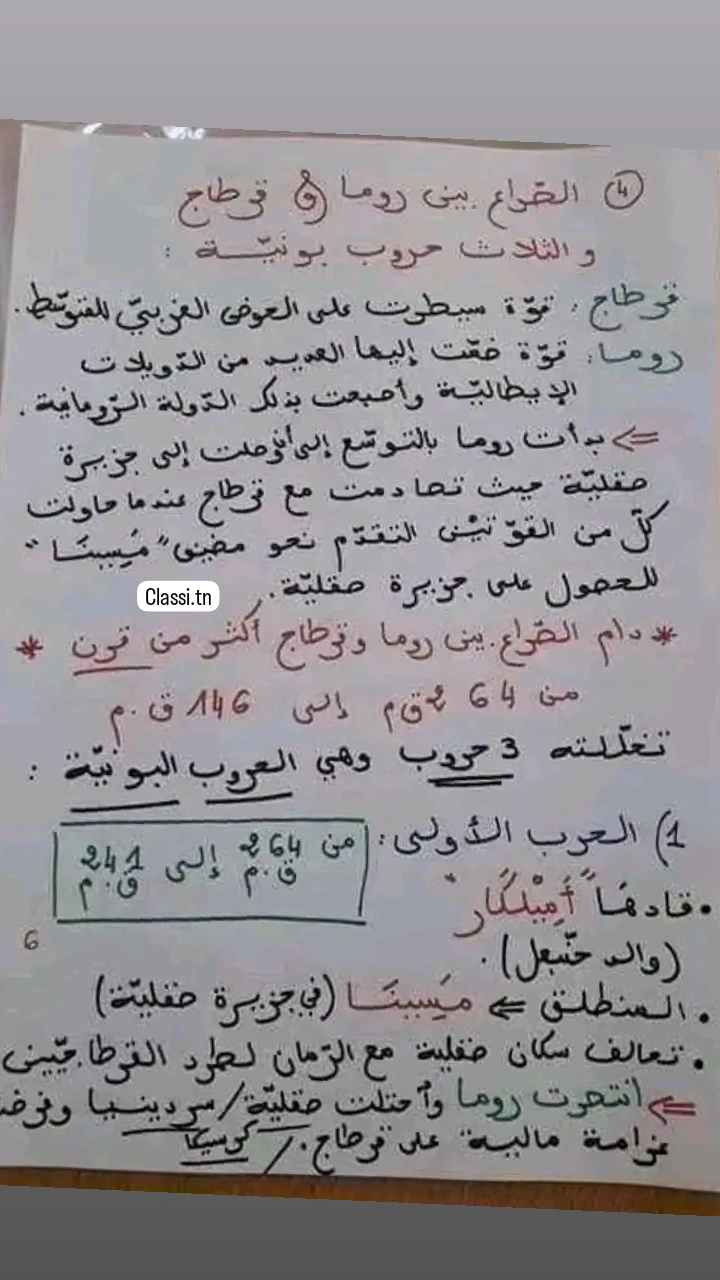 ④ الصّراع بين روما و قرطاج
و الثلاث حروب بونيّة :
قرطاج : قوّة سيطرت على الحوض الغربيّ للمتوسّط.
روما : قوّة ضمّت إليها العديد من الدّويلات
الإيطاليّة وأصبحت بذلك الدّولة الرّومانية .
⇐ بدأت روما بالتوسّع إلى أن وصلت إلى جزيرة
صقليّة حيث تصادمت مع قرطاج عندما حاولت
كلّ من القوّتين التقدّم نحو مضيق "مَسِينَا"
للحصول على جزيرة صقليّة.
Classi.tn
* دام الصّراع بين روما وقرطاج أكثر من قرن *
من 264 ق م إلى 146 ق.م
تخلّلته 3 حروب وهي الحروب البونيّة :
1) الحرب الأولى : من 264 ق.م إلى 241 ق.م
• قادها "أَمِيلْكَار"
(والد حنّبعل) .
6
• المنطلق ⇐ مَسِينَا (في جزيرة صقليّة)
• تحالف سكان صقلية مع الرّمان لطرد القرطاجيّين
⇐ انتصرت روما وٱحتلت صقليّة/سردينيا
غرامة مالية على قرطاج. / كرسيكا